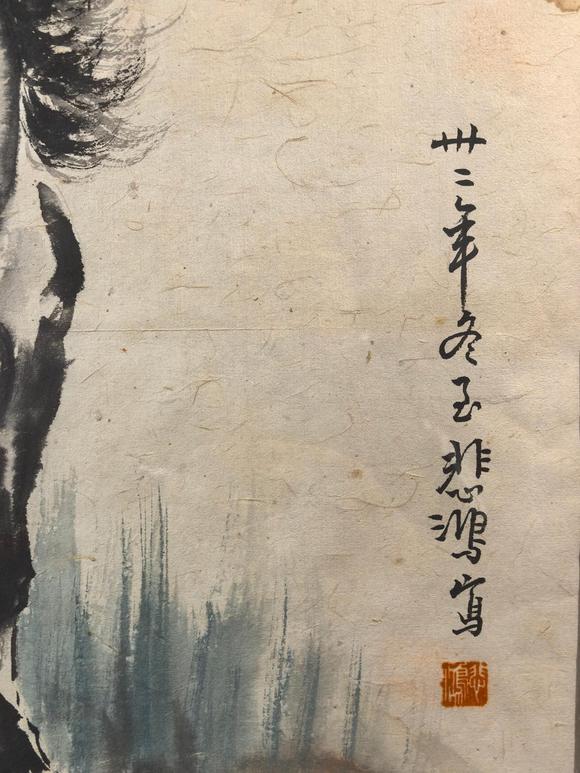 卅二年冬至悲鴻寫
悲鴻